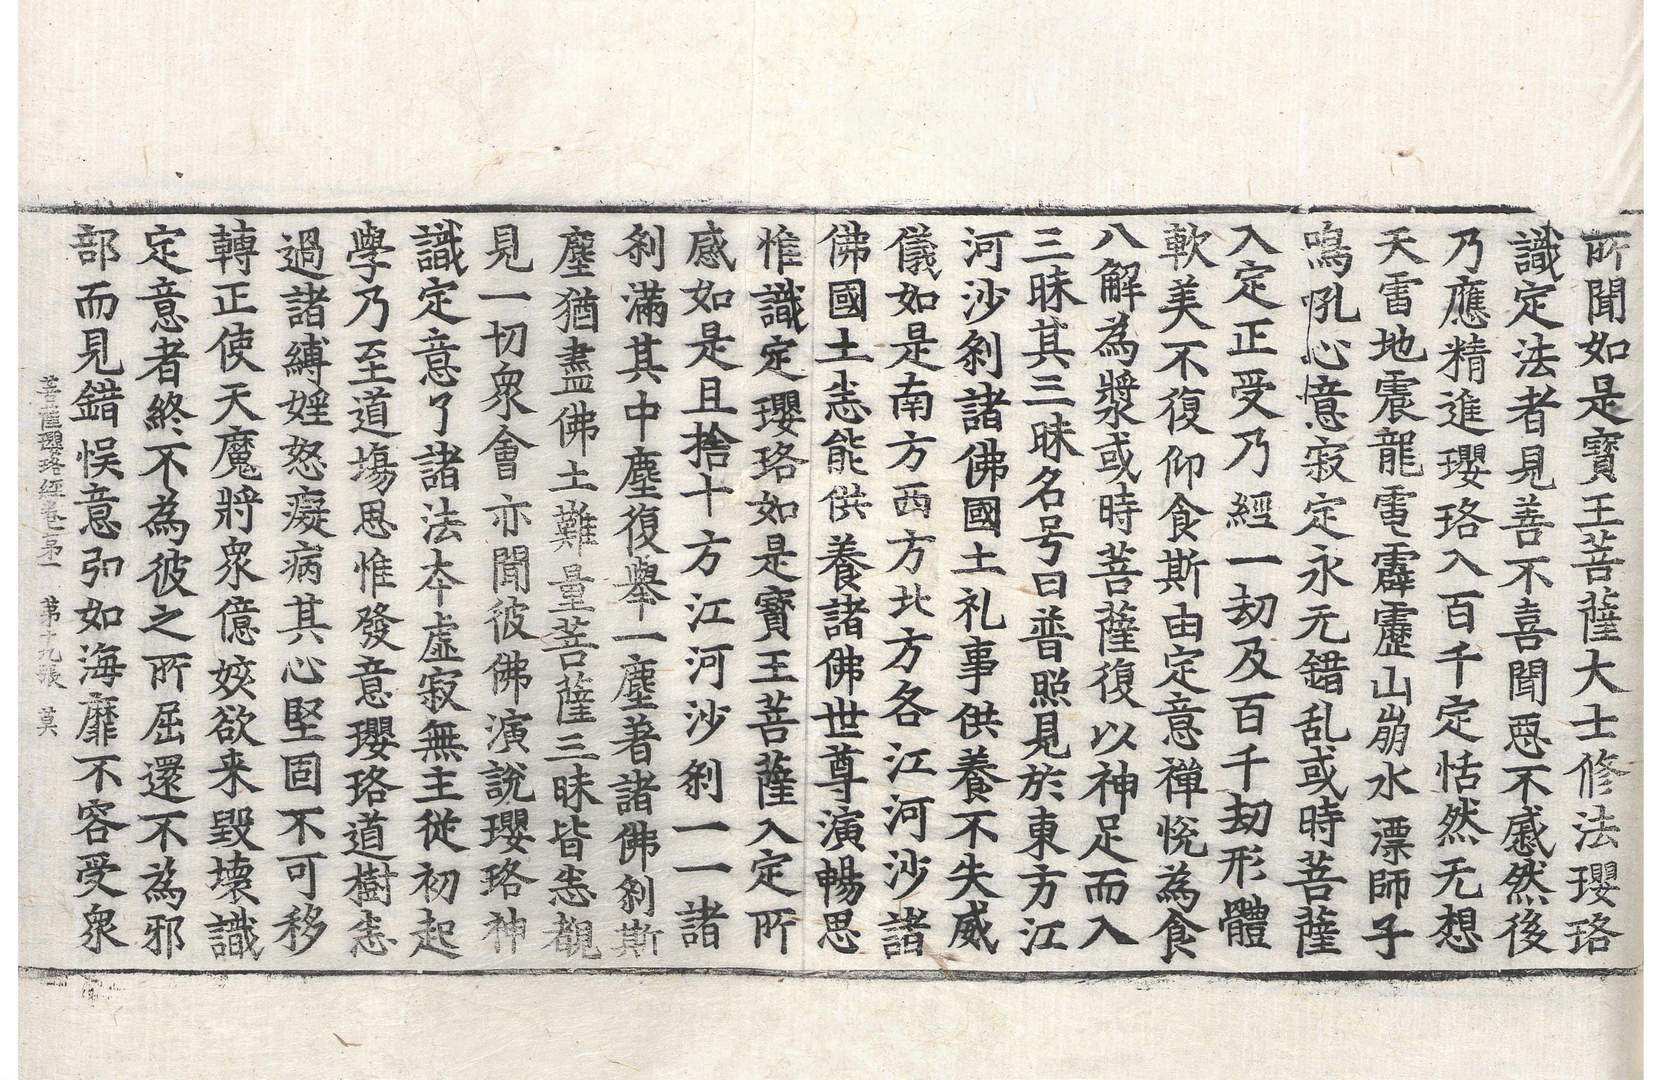 所聞如是寳王菩薩大士修法瓔珞
識定法者見善不喜聞惡不慼然後
乃應精進瓔珞入百千定恬然无想
天雷地震龍電霹靂山崩水漂師子
鳴吼心憶寂定永无錯乱或時菩薩
入定正受乃經一劫及百千劫形體
軟美不復仰食斯由定意禪悅為食
八解為漿或時菩薩復以神足而入
三昧其三昧名号曰普照見於東方江
河沙刹諸佛國土礼事供養不失威
儀如是南方西方北方各江河沙諸
佛國土悉能供養諸佛世尊演暢思
惟識定瓔珞如是寳王菩薩入定所
感如是且捨十方江河沙刹一一諸
刹滿其中塵復舉一塵著諸佛刹斯
塵猶盡佛土難量菩薩三昧皆悉觀
見一切衆會亦聞彼佛演說瓔珞神
識定意了諸法本虛寂無主從初起
學乃至道場思惟發意瓔珞道樹悉
過諸縛婬怒癡病其心堅固不可移
轉正使天魔將衆億姟欲来毀壞識
定意者終不為彼之所屈還不為邪
部而見錯悞意弘如海靡不容受衆
菩薩瓔珞經卷第一 第十九張 莫